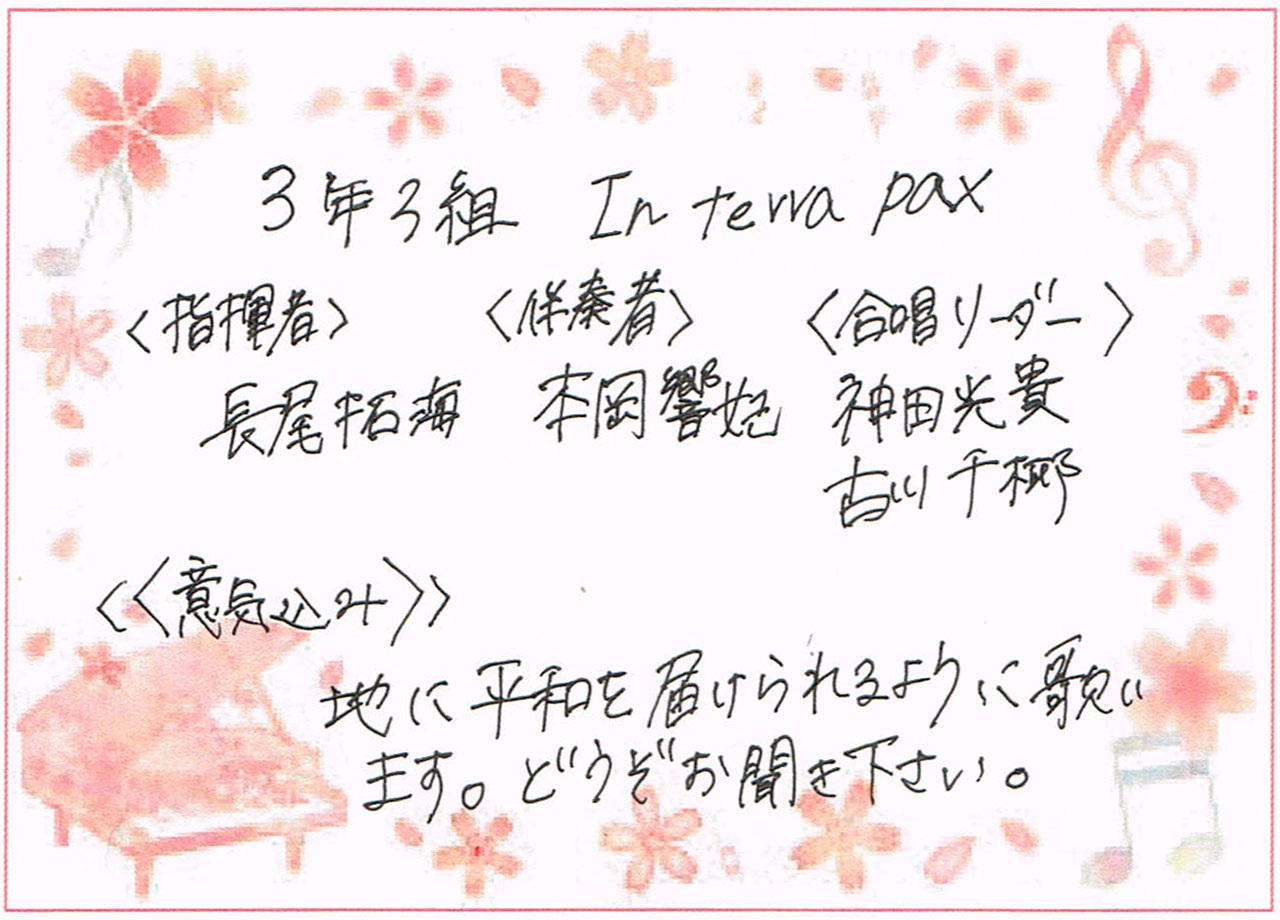 3年3組 In terra pax
〈指揮者〉 〈伴奏者〉 〈合唱リーダー〉
長尾拓海 本岡響妃 神田光貴
古川千椰
《意気込み》
地に平和を届けられるように歌い
ます。どうぞお聞き下さい。